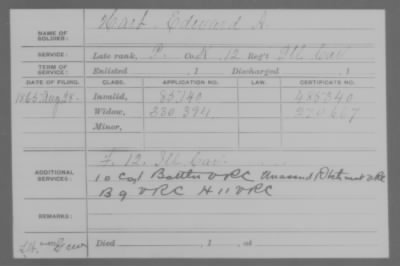 NAME OF SOLDIER: Hart, Edward A.
SERVICE: Late rank, P. Co. K, 12 Reg't Ill Cav
TERM OF SERVICE: Enlisted , 1 Discharged , 1
DATE OF FILING. CLASS. APPLICATION NO. LAW. CERTIFICATE NO.
1865 Aug 28. Invalid, 85740 485340
Widow, 230.394 270667
Minor,
ADDITIONAL SERVICES: F. 12. Ill Cav.
10 Co 1 Battn VRC Unassd Detchmt VRC
B 9 VRC H 11 VRC
REMARKS:
Died , 1 , at